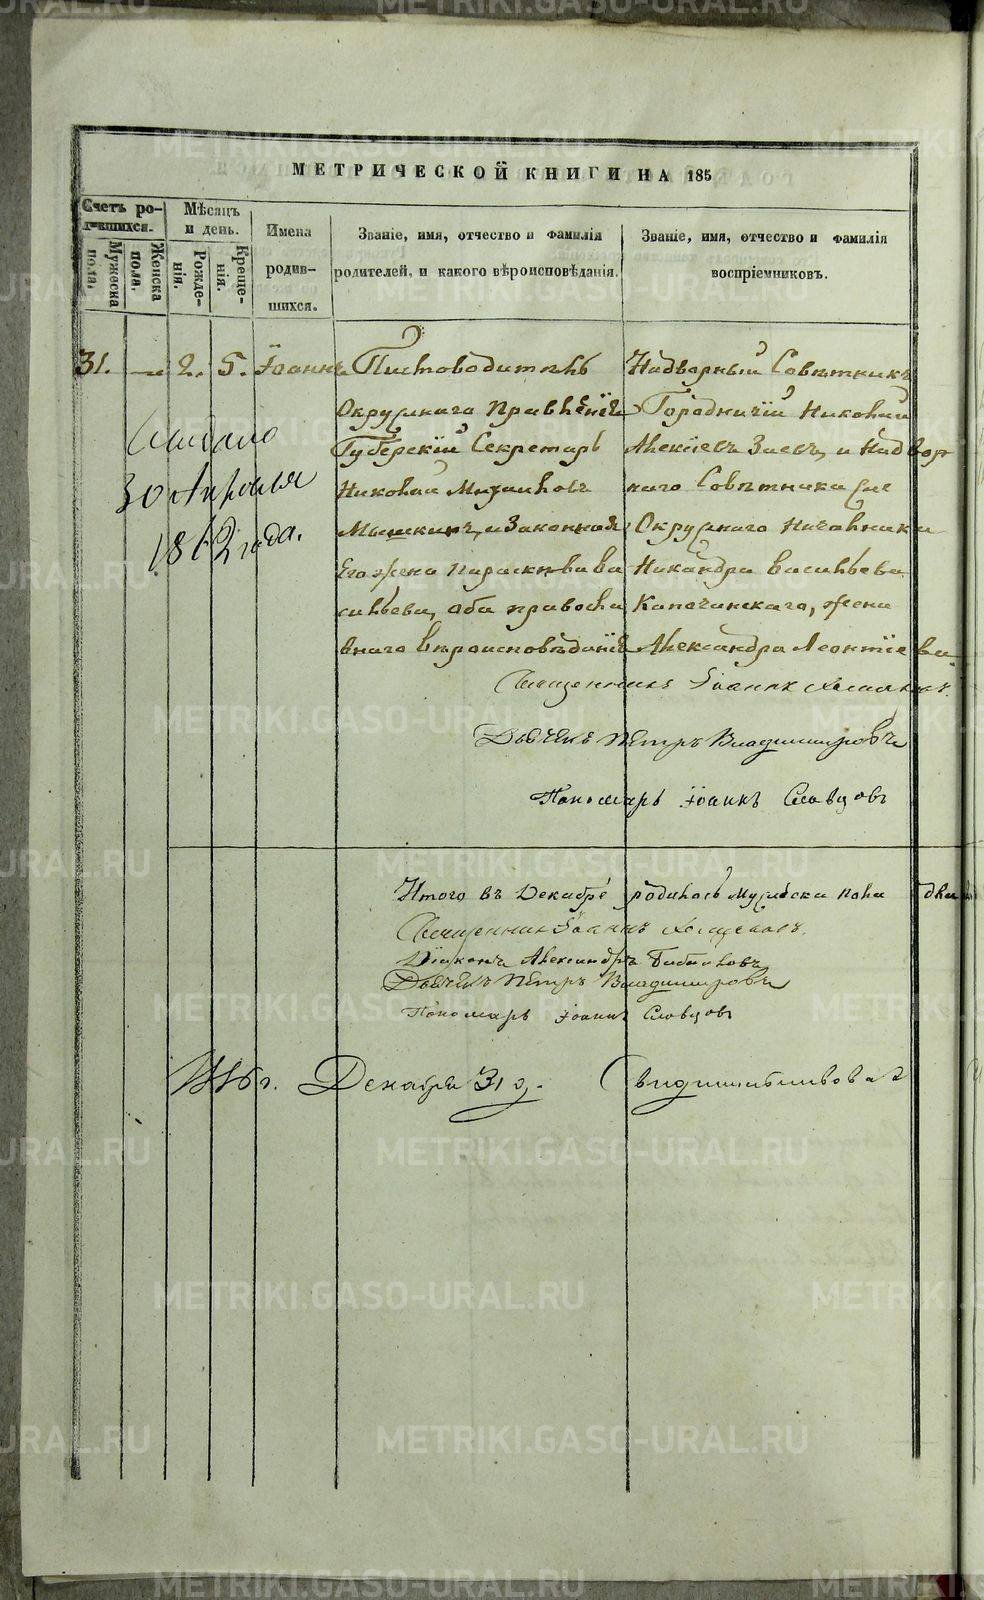 МЕТРИЧЕСКОЙ КНИГИ НА 185
Счетъ ро-
дившихся.
Мужеска
пола.
Женска
пола.
Мѣсяцъ
и день.
Рожде-
нія.
Креще-
нія.
Имена
родив-
шихся.
Званіе, имя, отчество и фамилія
родителей, и какого вѣроисповѣданія.
Званіе, имя, отчество и фамилія
воспріемниковъ.
31. — 2. 5. Іоаннъ
Писмоводитель
Окружнаго Правленія
Губерскій Секретарь
Николай Михаиловъ
Мышкинъ, и Законная
Его жена Параскѣва Ва
сильева, оба правосла
внаго вѣроисповѣданія
Надворный Совѣтникъ
Городничій Николай
Алексіевъ Заевъ, и Надвор
наго Совѣтника
Окружнаго Начальника
Никандра Васильева
Капачинскаго, жена
Александра Леонтіева.
30 Апрѣля
1862 года.
Священникъ Іоаннъ
Дьячекъ Петръ Владимировъ
Пономарь Іоаннъ Словцовъ
Итого въ Декабрѣ родилось Мужеска пола два
Священникъ Іоаннъ
Діаконъ Александръ Бибиковъ
Дьячекъ Петръ Владимировъ
Пономарь Іоаннъ Словцовъ
Декабря 31 д. Свидѣтельствовалъ
METRIKI.GASO-URAL.RU